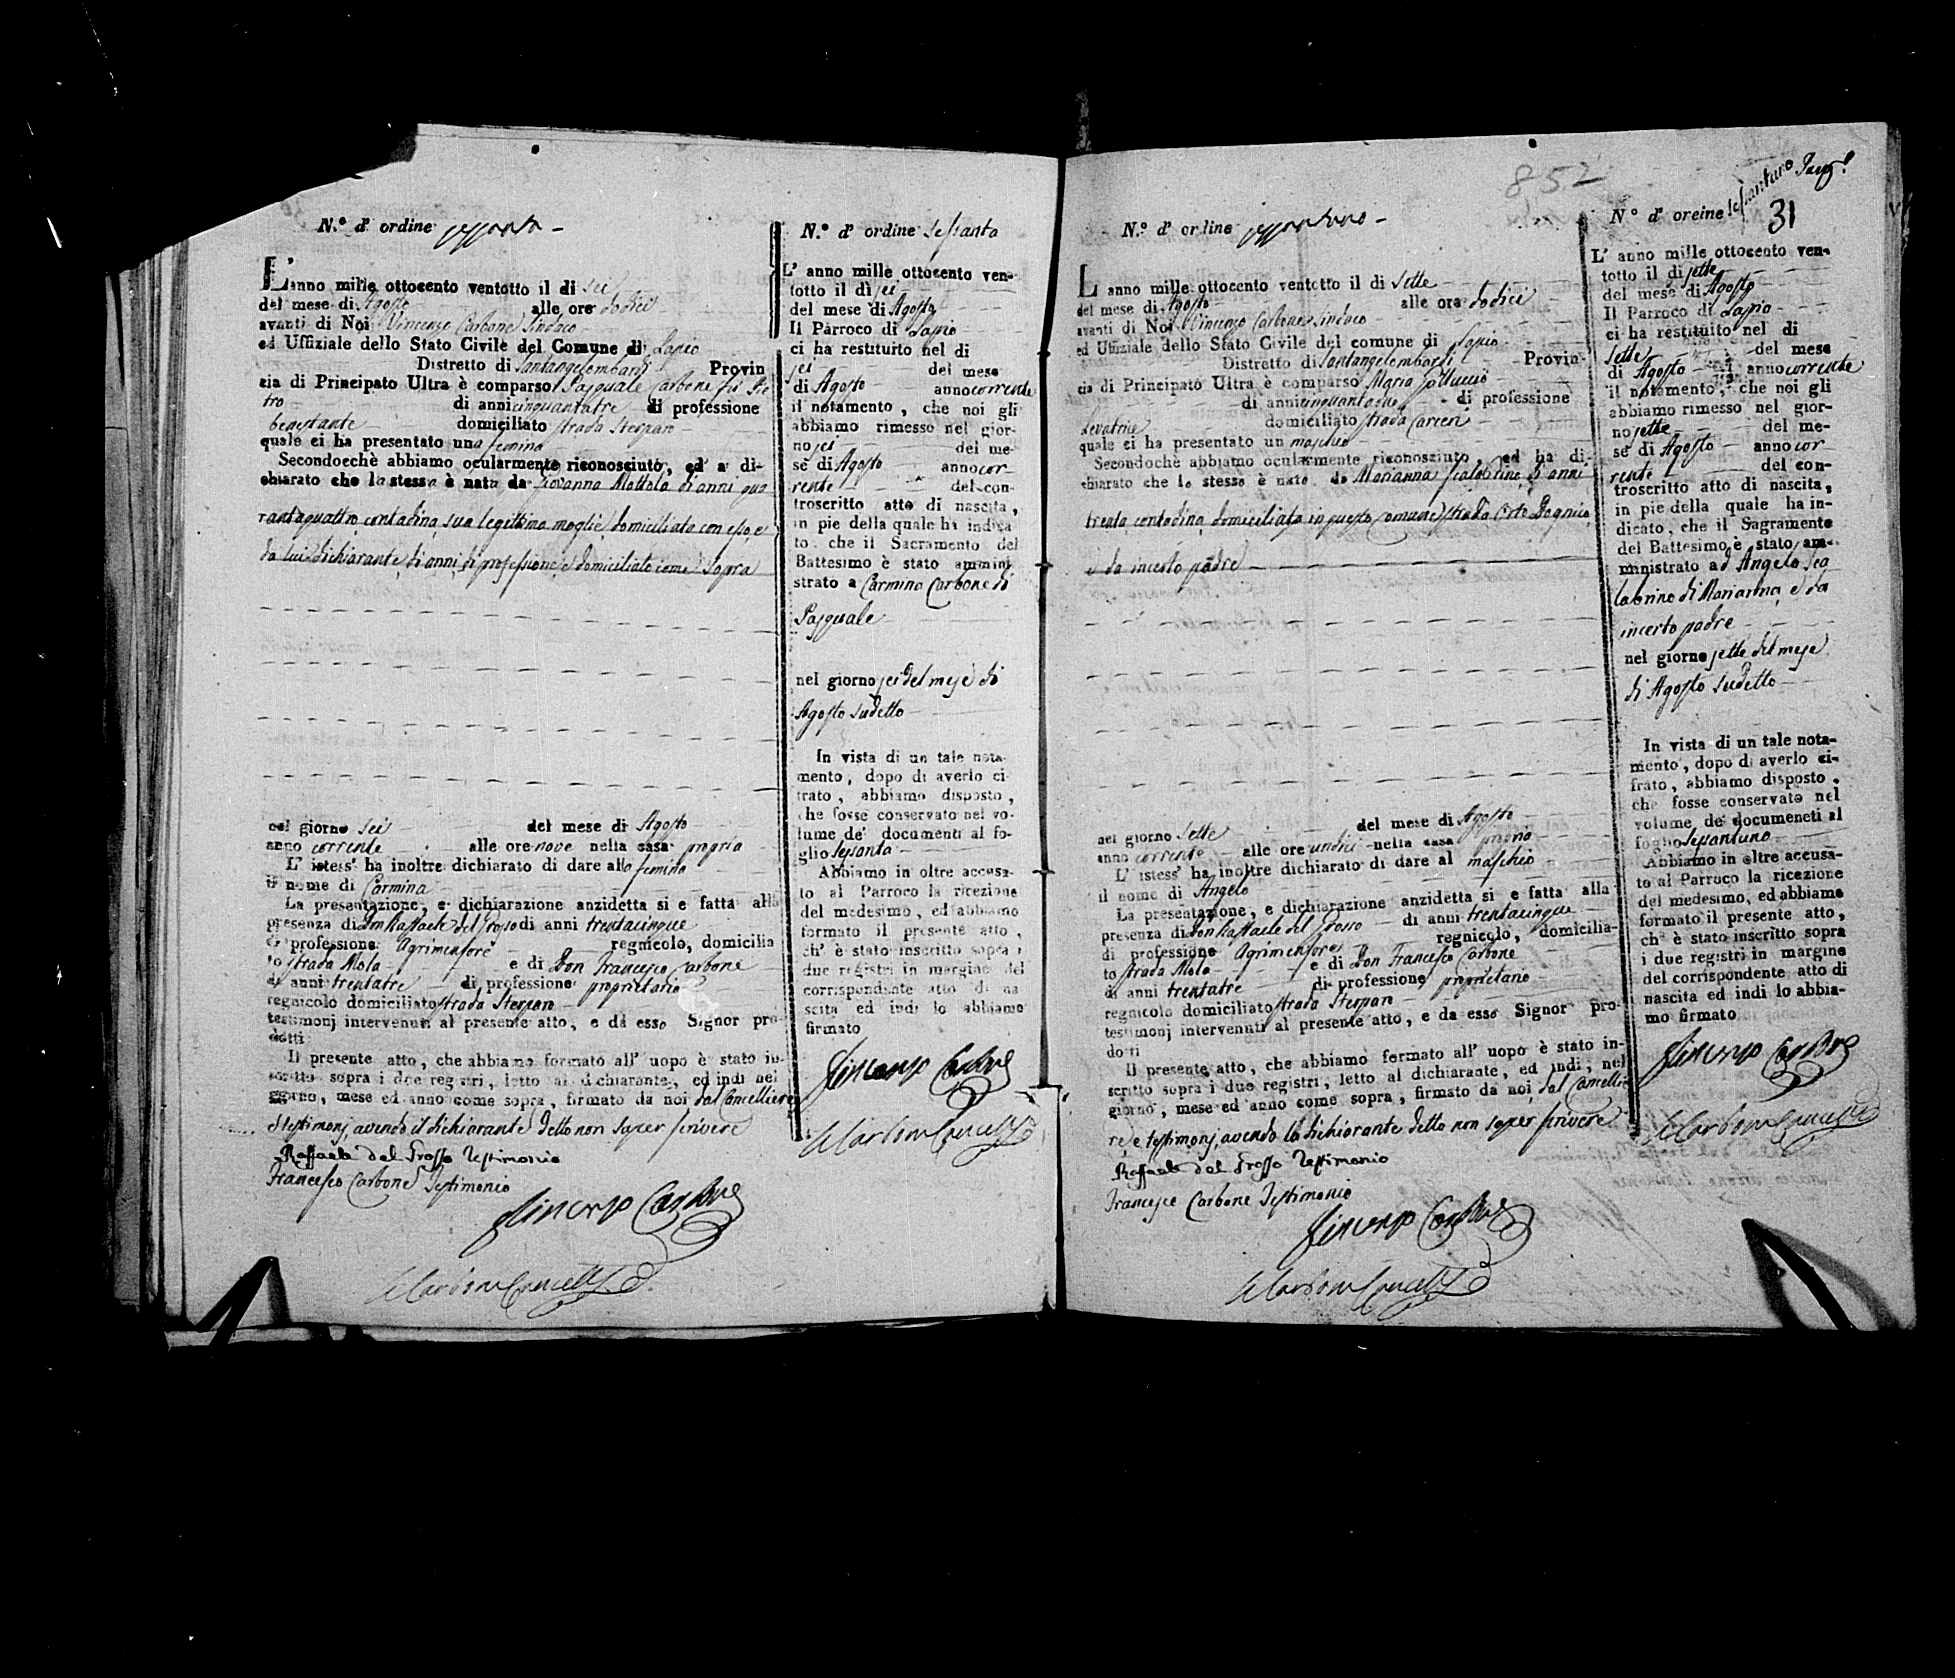 N.° d' ordine sessanta
L' anno mille ottocento ventotto il di sei
del mese di Agosto alle ore dodici
avanti di Noi Vincenzo Carbone Sindaco
ed Uffiziale dello Stato Civile del Comune di Lapio
Distretto di Santangelombardi Provin
cia di Principato Ultra è comparso Pasquale Carbone fù Pie
tro di anni cinquantatre di professione
benestante domiciliato strada Sterpara
quale ci ha presentato una femina
Secondoechè abbiamo ocularmente riconosciuto, ed a di-
chiarato che la stessa è nata da Giovanna Mottola di anni qua
rantaquattro contadina sua legittima moglie domiciliata con esso, e
da lui dichiarante di anni di professione e domiciliato come sopra
nel giorno sei del mese di Agosto
anno corrente alle ore nove nella casa propria
L' istess' ha inoltre dichiarato di dare alla femina
il nome di Carmina
La presentazione, e dichiarazione anzidetta si e fatta alla
presenza di Don Raffaele del Grosso di anni trentacinque
di professione Agrimensore regnicolo, domicilia
to strada Mola e di Don Francesco Carbone
di anni trentatre di professione proprietario
regnicolo domiciliato strada Sterpara
testimonj intervenuti al presente atto, e da esso Signor pro-
dotti
Il presente atto, che abbiamo formato all' uopo è stato in-
scritto sopra i due registri, letto al dichiarante, ed indi nel
giorno, mese ed anno come sopra, firmato da noi dal Cancelliere
e testimonj, avendo il dichiarante detto non saper scrivere
Raffaele del Grosso Testimonio
Francesco Carbone Testimonio
Vincenzo Carbone
Carbone Cancell.
N.° d' ordine sessanta
L' anno mille ottocento ven-
totto il dì sei
del mese di Agosto
Il Parroco di Lapio
ci ha restituito nel di
sei del mese
di Agosto anno corrente
il notamento, che noi gli
abbiamo rimesso nel gior-
no sei del me-
se di Agosto anno cor-
rente del con-
troscritto atto di nascita,
in pie della quale ha indica
to che il Sacramento del
Battesimo è stato ammini
strato a Carmina Carbone di
Pasquale
nel giorno sei del mese di
Agosto sudetto
In vista di un tale nota-
mento, dopo di averlo ci-
frato, abbiamo disposto,
che fosse conservato nel vo-
lume de' documenti al fo-
glio sessanta
Abbiamo in oltre accusa-
to al Parroco la ricezione
del medesimo, ed abbiamo
formato il presente atto,
ch' è stato inscritto sopra i
due registri in margine del
corrispondente atto di na
scita ed indi lo abbiamo
firmato
Vincenzo Carbone
Carbone Cancell.
852
N.° d' ordine sessantuno
L' anno mille ottocento ventotto il di sette
del mese di Agosto alle ore dodici
avanti di Noi Vincenzo Carbone Sindaco
ed Uffiziale dello Stato Civile del comune di Lapio
Distretto di Santangelombardi Provin-
cia di Principato Ultra è comparso Maria
di anni di professione
Levatrice domiciliato strada Carceri
quale ci ha presentato un maschio
Secondochè abbiamo ocularmente riconosciuto, ed ha di-
chiarato che lo stesso è nato da Marianna Scalabrino di anni
trenta contadina domiciliata in questo Comune strada Orto
e da incerto padre
nel giorno sette del mese di Agosto
anno corrente alle ore undici nella casa propria
L' istess' ha inoltre dichiarato di dare al maschio
il nome di Angelo
La presentazione, e dichiarazione anzidetta si e fatta alla
presenza di Don Raffaele del Grosso di anni trentacinque
di professione Agrimensore regnicolo, domicilia-
to strada Mola e di Don Francesco Carbone
di anni trentatre di professione proprietario
regnicolo domiciliato strada Sterpara
testimonj intervenuti al presente atto, e da esso Signor pro-
dotti
Il presente atto, che abbiamo formato all' uopo è stato in-
scritto sopra i due registri, letto al dichiarante, ed indi, nel
giorno, mese ed anno come sopra, firmato da noi, dal Cancellie
re, e testimonj, avendo la dichiarante detto non saper scrivere
Raffaele del Grosso Testimonio
Francesco Carbone Testimonio
Vincenzo Carbone
Carbone Cancell.
N° d' oreine sessantuno
31
L' anno mille ottocento ven-
totto il di sette
del mese di Agosto
Il Parroco di Lapio
ci ha restituito nel di
sette del mese
di Agosto anno corrente
il notamento, che noi gli
abbiamo rimesso nel gior-
no sette del me-
se di Agosto anno cor-
rente del con-
troscritto atto di nascita,
in pie della quale ha in-
dicato, che il Sagramento
del Battesimo è stato am-
ministrato ad Angelo Sca
labrino di Marianna, e da
incerto padre
nel giorno sette del mese
di Agosto sudetto
In vista di un tale nota-
mento, dopo di averlo ci-
frato, abbiamo disposto,
che fosse conservato nel
volume de' documeneti al
foglio sessantuno
Abbiamo in oltre accusa-
to al Parroco la ricezione
del medesimo, ed abbiamo
formato il presente atto,
ch' è stato inscritto sopra
i due registri in margine
del corrispondente atto di
nascita ed indi lo abbia-
mo firmato
Vincenzo Carbone
Carbone Cancell.